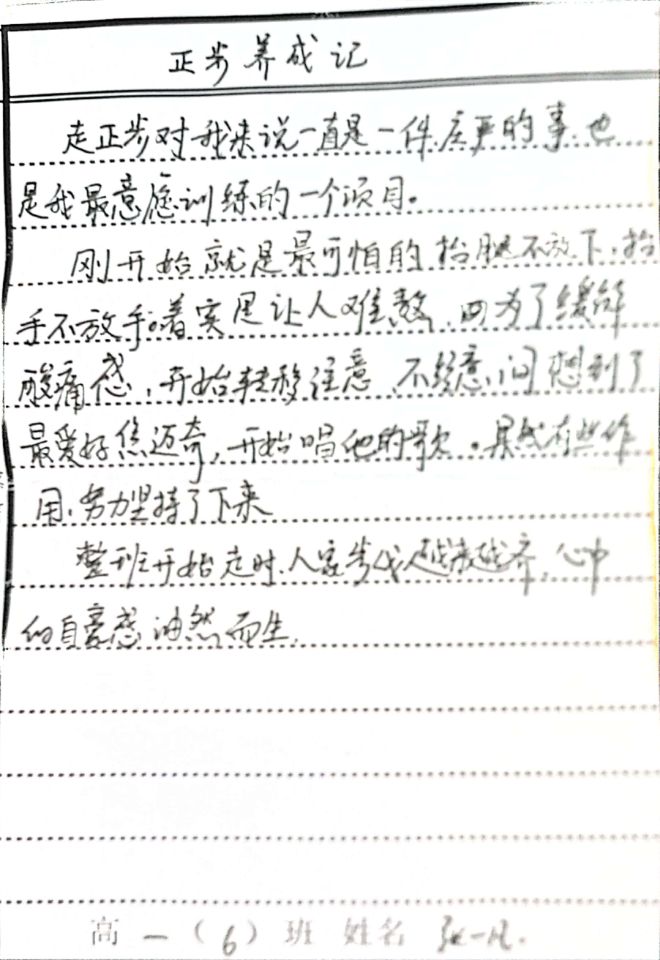 正步养成记
走正步对我来说一直是一件庄严的事.也
是我最意愿训练的一个项目。
刚开始就是最可怕的抬腿不放下,抬
手不放手。着实是让人难熬.因为了缓解
酸痛感,开始转移注意.不经意间想到了
最爱好焦迈奇,开始唱他的歌。果然有些作
用.努力坚持了下来
整班开始走时.人家步伐越来越齐,心中
的自豪感油然而生.
高一(6)班 姓名 张一凡.